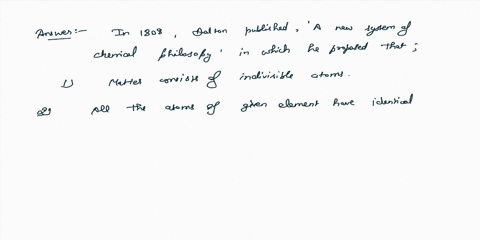 Answer:- In 1808, Dalton published, 'A new system of
chemical philosophy' in which he proposed that;
1) Matter consists of indivisible atoms.
2) All the atoms of given element have identical